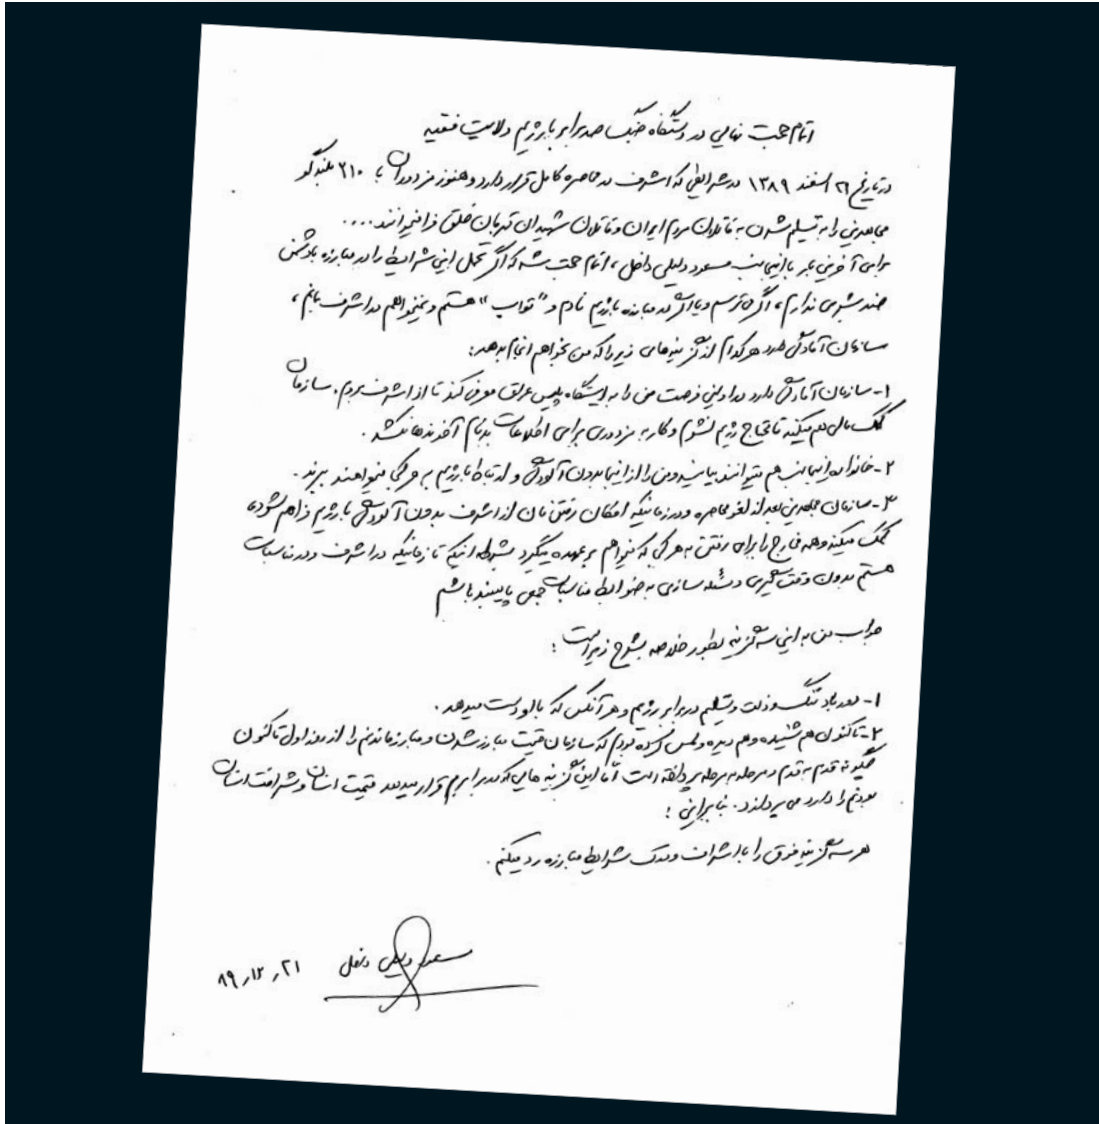 اتمام حجت نهایی در دستگاه جنگ صدبرابر با رژیم ولایت فقیه
در تاریخ ۲۱ اسفند ۱۳۸۹ در شرایطی که اشرف در محاصره کامل قرار دارد و هنوز مزدوران با ۲۱۰ بلندگو
مجاهدین را به تسلیم شدن به قاتلان مردم ایران و قاتلان شهیدان قهرمان خلق فرا میخوانند....
برای آخرین بار با اینجانب مسعود دلیلی داخل، اتمام حجت شد که اگر تحمل این شرایط را در مبارزه با دشمن
ضد بشری ندارم، اگر می ترسم و یا اگر در مبارزه با رژیم نادم و "تواب" هستم و نمیخواهم در اشرف بمانم،
سازمان آمادگی دارد هر کدام از گزینه های زیر را که من بخواهم انجام بدهد:
۱- سازمان آمادگی دارد در اولین فرصت من را به ایستگاه پلیس عراق معرفی کند تا از اشرف بروم. سازمان
کمک مالی هم میکند تا محتاج رژیم نشوم و کار به مزدوری برای اطلاعات بدنام آخوندها نکشد.
۲- خانواده اینجانب هم میتوانند بیایند و من را از اینجا بدون آلودگی و ارتباط با رژیم به هر کجا میخواهند ببرند.
۳- سازمان مجاهدین بعد از لغو محاصره و در زمانیکه امکان رفتن مان از اشرف بدون آلودگی با رژیم فراهم شود،
کمک میکند و همه مخارج را برای رفتن به هر کجا که میخواهم بر عهده میگیرد بشرط اینکه تا زمانیکه در اشرف و در مناسبات
هستم بدون وقت گیری و مسئله سازی به ضوابط مناسبات جمعی پایبند باشم
جواب من به این سه گزینه بطور خلاصه بشرح زیر است:
۱- دور باد ننگ و ذلت و تسلیم در برابر رژیم و هر آنکس که با او دست میدهد.
۲- تاکنون هم شنیده و هم دیده و لمس کرده بودم که سازمان قیمت مبارز شدن و مبارز ماندنم را از روز اول تا کنون
چگونه قدم به قدم و مرحله به مرحله پرداخته است اما این گزینه هایی که در برابرم قرار میدهد قیمت انسان و شرافت انسان
بودنم را دارد می پردازد. بنابراین:
هر سه گزینه فوق را با اشراف و درک شرایط مبارزه رد میکنم.
مسعود دلیلی داخل ۸۹،۱۲،۲۱